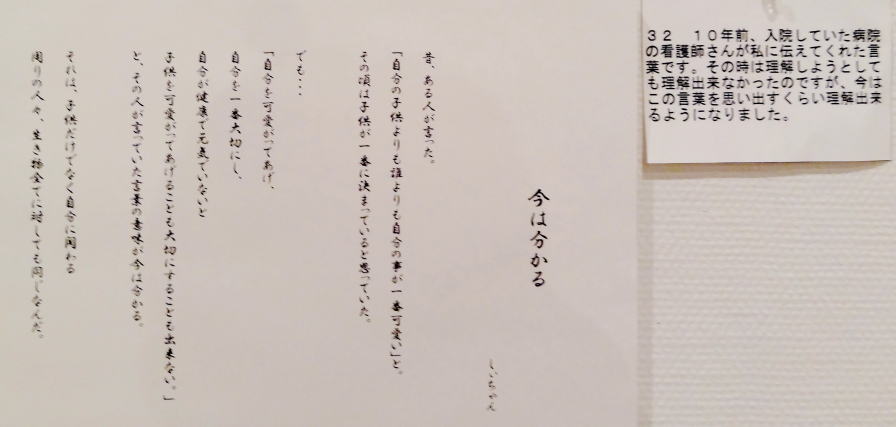 今は分かる
しいちゃん
昔、ある人が言った。
「自分の子供よりも誰よりも自分の事が一番可愛い」と。
その頃は子供が一番に決まっていると思っていた。
でも・・・
「自分を可愛がってあげ、
自分を一番大切にし、
自分が健康で元気でいないと
子供を可愛がってあげることも大切にすることも出来ない。」
と、その人が言っていた言葉の意味が今は分かる。
それは、子供だけでなく自分に関わる
周りの人々、生き物全てに対しても同じなんだ。
32　10年前、入院していた病院
の看護師さんが私に伝えてくれた言
葉です。その時は理解しようとして
も理解出来なかったのですが、今は
この言葉を思い出すくらい理解出来
るようになりました。